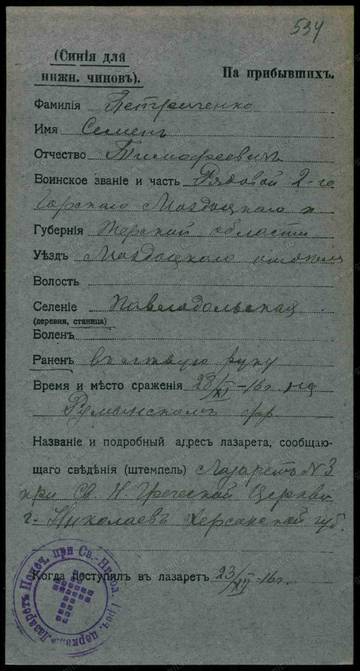 534
(Синія для
нижн. чиновъ).
На прибывшихъ.
Фамилія Петриченко
Имя Семенъ
Отчество Тимофеевичъ
Воинское званіе и часть Рядовой 2-го
Горскаго Моздокскаго п
Губернія Терской области
Уѣздъ Моздокскаго отдѣла
Волость
Селеніе Павлодольская
(деревня, станица)
Боленъ
Раненъ въ лѣвую руку
Время и мѣсто сраженія 23/XI -16 г. на
Румынскомъ фр
Названіе и подробный адресъ лазарета, сообщаю-
щаго свѣдѣнія (штемпель) Лазаретъ №3
при Св. Н. Греческой Церкви
г. Николаевъ Херсонской губ.
Когда поступилъ въ лазаретъ 23/XII -16 г.
Лазаретъ при Св.-Никол. Греч. церкви